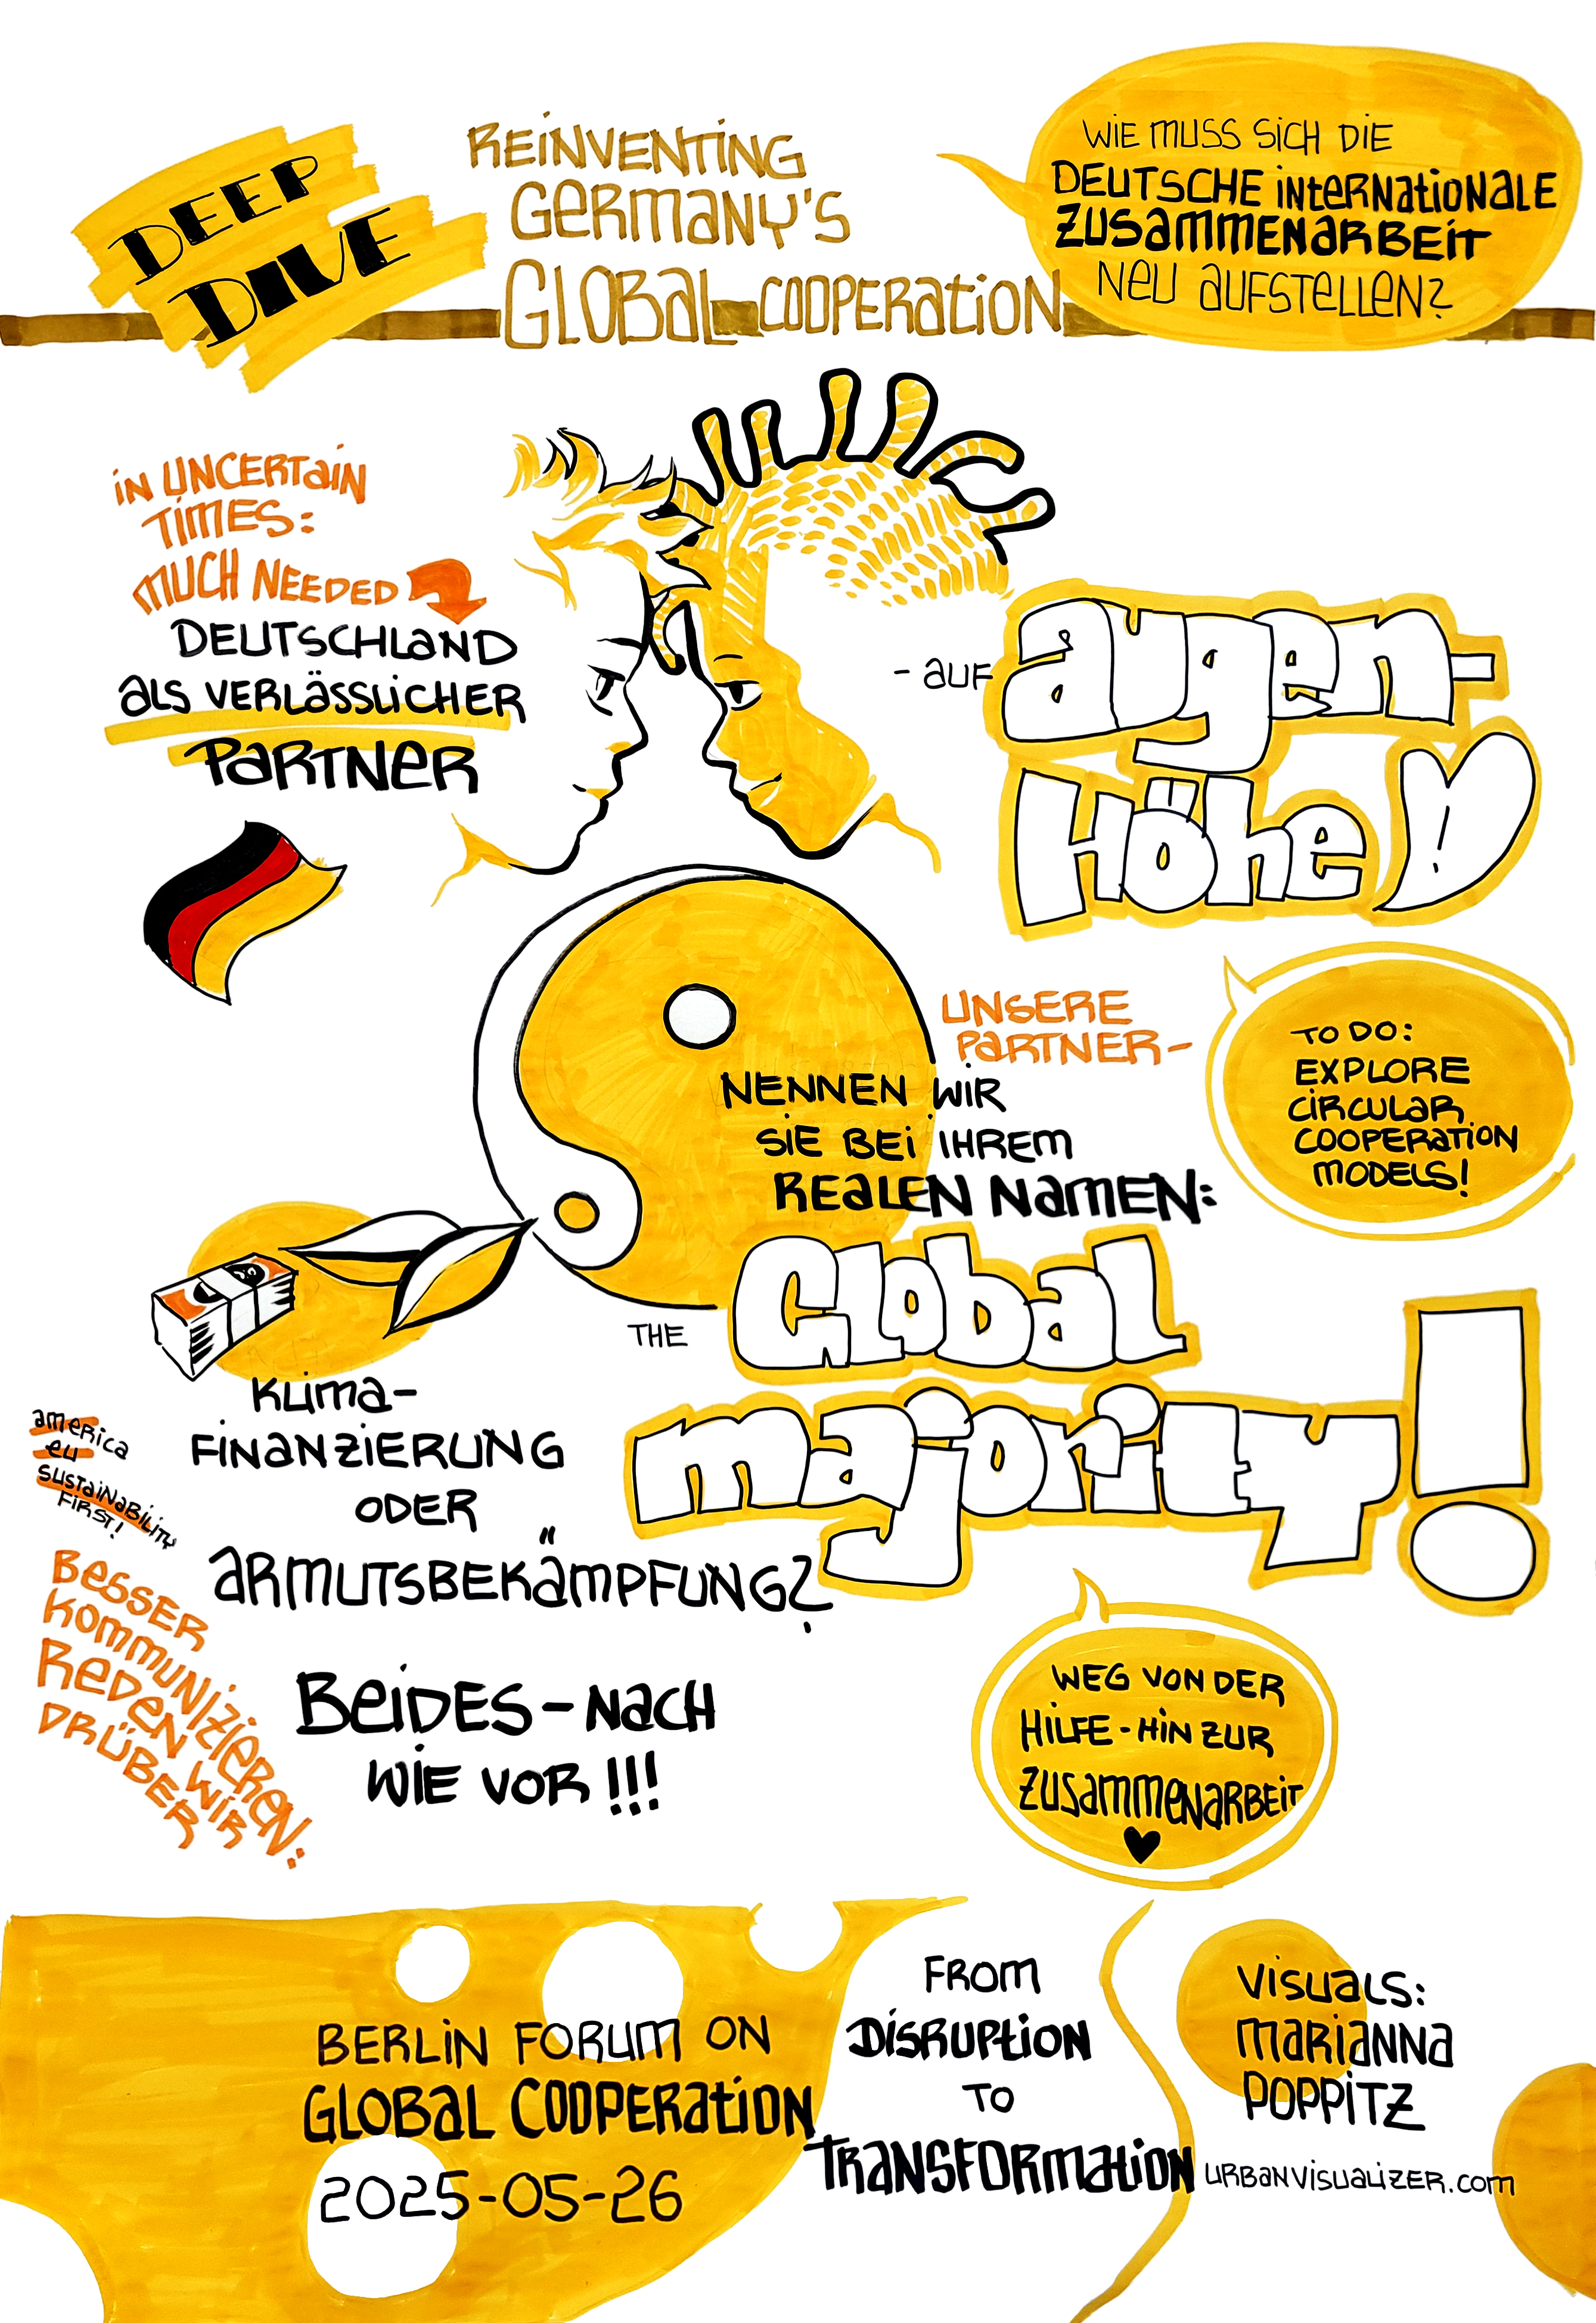 DEEP
DIVE
REINVENTING
GERMANY'S
GLOBAL COOPERATION
WIE MUSS SICH DIE
DEUTSCHE INTERNATIONALE
ZUSAMMENARBEIT
NEU AUFSTELLEN?
IN UNCERTAIN
TIMES:
MUCH NEEDED
DEUTSCHLAND
ALS VERLÄSSLICHER
PARTNER
- AUF
AUGEN-
HÖHE
UNSERE
PARTNER-
NENNEN WIR
SIE BEI IHREM
REALEN NAMEN:
THE
GLOBAL
MAJORITY!
TO DO:
EXPLORE
CIRCULAR
COOPERATION
MODELS!
KLIMA-
FINANZIERUNG
ODER
ARMUTSBEKÄMPFUNG?
AMERICA
EU
SUSTAINABILITY
FIRST!
BESSER
KOMMUNIZIEREN:
REDEN WIR
DRÜBER
BEIDES - NACH
WIE VOR !!!
WEG VON DER
HILFE - HIN ZUR
ZUSAMMENARBEIT
BERLIN FORUM ON
GLOBAL COOPERATION
2025-05-26
FROM
DISRUPTION
TO
TRANSFORMATION
VISUALS:
MARIANNA
POPPITZ
URBANVISUALIZER.COM